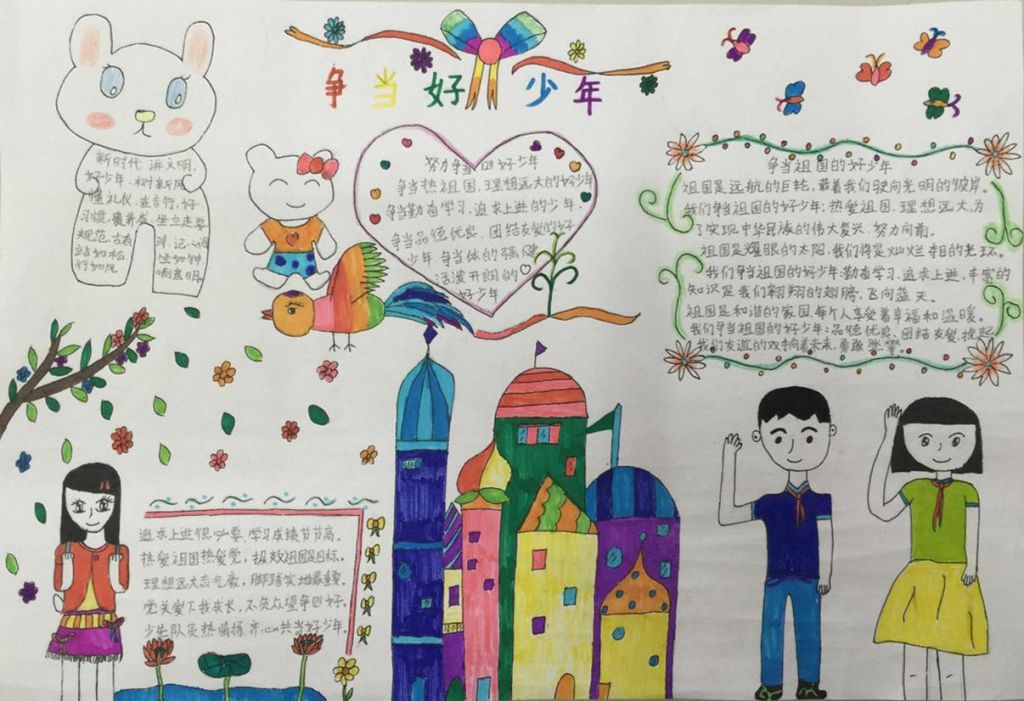 争当好少年
新时代 讲文明,
好少年.树新风
懂礼仪.在言行,好
习惯,要养成 坐立走要
规范,古有 训,记心间
站如松, 坐如钟
行如风
努力争当四好少年
争当热祖国,理想远大的好少年
争当勤奋学习.追求上进的少年.
争当品德优良.团结友爱的好
少年.争当体的强健
活泼开朗的
好少年
争当祖国的好少年
祖国是远航的巨轮,载着我们驶向光明的彼岸。
我们争当祖国的好少年:热爱祖国.理想远大,为
了实现中华民族的伟大复兴.努力向前。
祖国是耀眼的太阳.我们将是灿烂夺目的光环。
我们争当祖国的好少年勤奋学习.追求上进,丰富的
知识是我们翱翔的翅膀.飞向蓝天。
祖国是和谐的家园,每个人享受着幸福和温暖。
我们争当祖国的好少年:品德优良.团结友爱,挽起
我们友谊的双手向着未来.勇敢
追求上进很必要,学习成绩节节高。
热爱祖国热爱党,报效祖国是目标。
理想远大志气豪,脚踏实地最重要。
党关爱下我成长,不负众望争四好。
少先队员热情扬,齐心共当好少年。